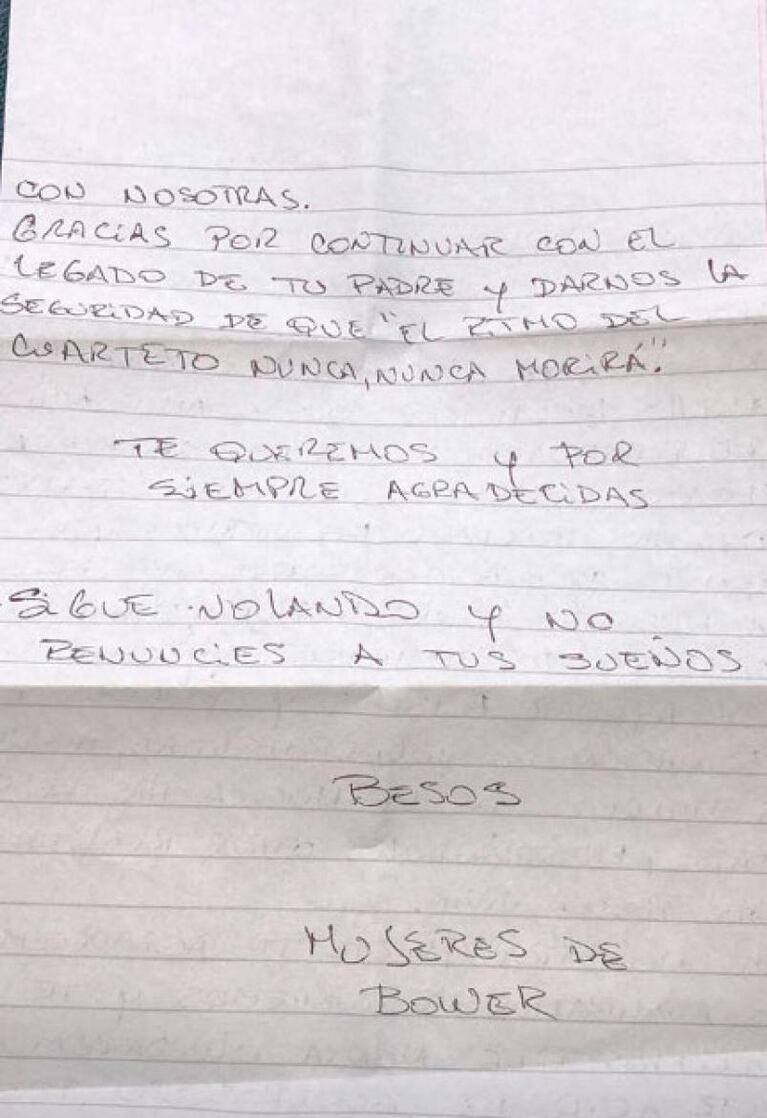 CON NOSOTRAS.
GRACIAS POR CONTINUAR CON EL
LEGADO DE TU PADRE Y DARNOS LA
SEGURIDAD DE QUE "EL RITMO DEL
CUARTETO NUNCA, NUNCA MORIRÁ".
TE QUEREMOS Y POR
SIEMPRE AGRADECIDAS
SIGUE VOLANDO Y NO
RENUNCIES A TUS SUEÑOS
BESOS
MUJERES DE
BOWER